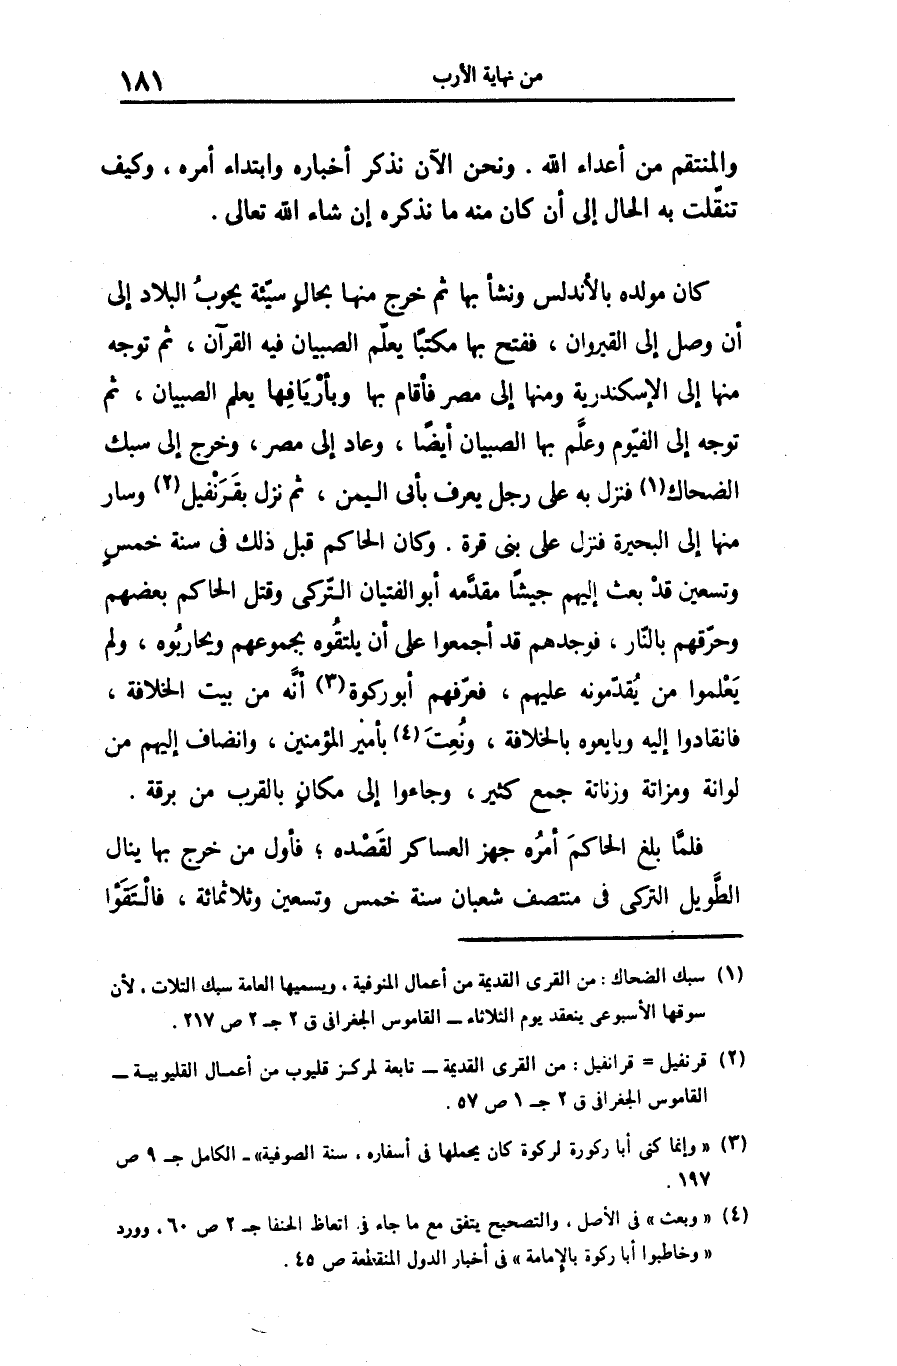 من نهاية الأرب ١٨١
والمنتقم من أعداء الله . ونحن الآن نذكر أخباره وابتداء أمره ، وكيف
تنقّلت به الحال إلى أن كان منه ما نذكره إن شاء الله تعالى .
كان مولده بالأندلس ونشأ بها ثم خرج منها بحالٍ سيّئة يجوبُ البلاد إلى
أن وصل إلى القيروان ، ففتح بها مكتبًا يعلّم الصبيان فيه القرآن ، ثم توجه
منها إلى الإسكندرية ومنها إلى مصر فأقام بها وبأرْيَافِها يعلم الصبيان ، ثم
توجه إلى الفيّوم وعلَّم بها الصبيان أيضًا ، وعاد إلى مصر ، وخرج إلى سبك
الضحاك(١) فنزل به على رجل يعرف بأبى اليمن ، ثم نزل بقَرَنْفيل(٢) وسار
منها إلى البحيرة فنزل على بنى قرة . وكان الحاكم قبل ذلك فى سنة خمسٍ
وتسعين قدْ بعث إليهم جيشًا مقدَّمه أبو الفتيان التّركى وقتل الحاكم بعضهم
وحرّقهم بالنّار ، فوجدهم قد أجمعوا على أن يلتقُوه بجموعهم ويحاربُوه ، ولم
يَعْلموا من يُقدّمونه عليهم ، فعرّفهم أبو ركوة(٣) أنَّه من بيت الخلافة ،
فانقادوا إليه وبايعوه بالخلافة ، ونُعِتَ(٤) بأمير المؤمنين ، وانضاف إليهم من
لواتة ومزاتة وزناتة جمع كثير ، وجاءوا إلى مكانٍ بالقرب من برقة .
فلمَّا بلغ الحاكمَ أمرُه جهز العساكر لقَصْده ؛ فأول من خرج بها ينال
الطَّويل التركى فى منتصف شعبان سنة خمس وتسعين وثلاثمائة ، فالْتَقَوْا
(١) سبك الضحاك : من القرى القديمة من أعمال المنوفية ، ويسميها العامة سبك التلات ، لأن
سوقها الأسبوعى ينعقد يوم الثلاثاء ــ القاموس الجغرافى ق ٢ جـ ٢ ص ٢١٧ .
(٢) قرنفيل = قرانفيل : من القرى القديمة ــ تابعة لمركز قليوب من أعمال القليوبية ــ
القاموس الجغرافى ق ٢ جـ ١ ص ٥٧ .
(٣) « وإنما كنى أبا ركورة لركوة كان يحملها فى أسفاره ، سنة الصوفية» ـ الكامل جـ ٩ ص
١٩٧ .
(٤) « وبعث » فى الأصل ، والتصحيح يتفق مع ما جاء فى اتعاظ الحنفا جـ ٢ ص ٦٠ ، وورد
« وخاطبوا أبا ركوة بالإمامة » فى أخبار الدول المنقطعة ص ٤٥ .